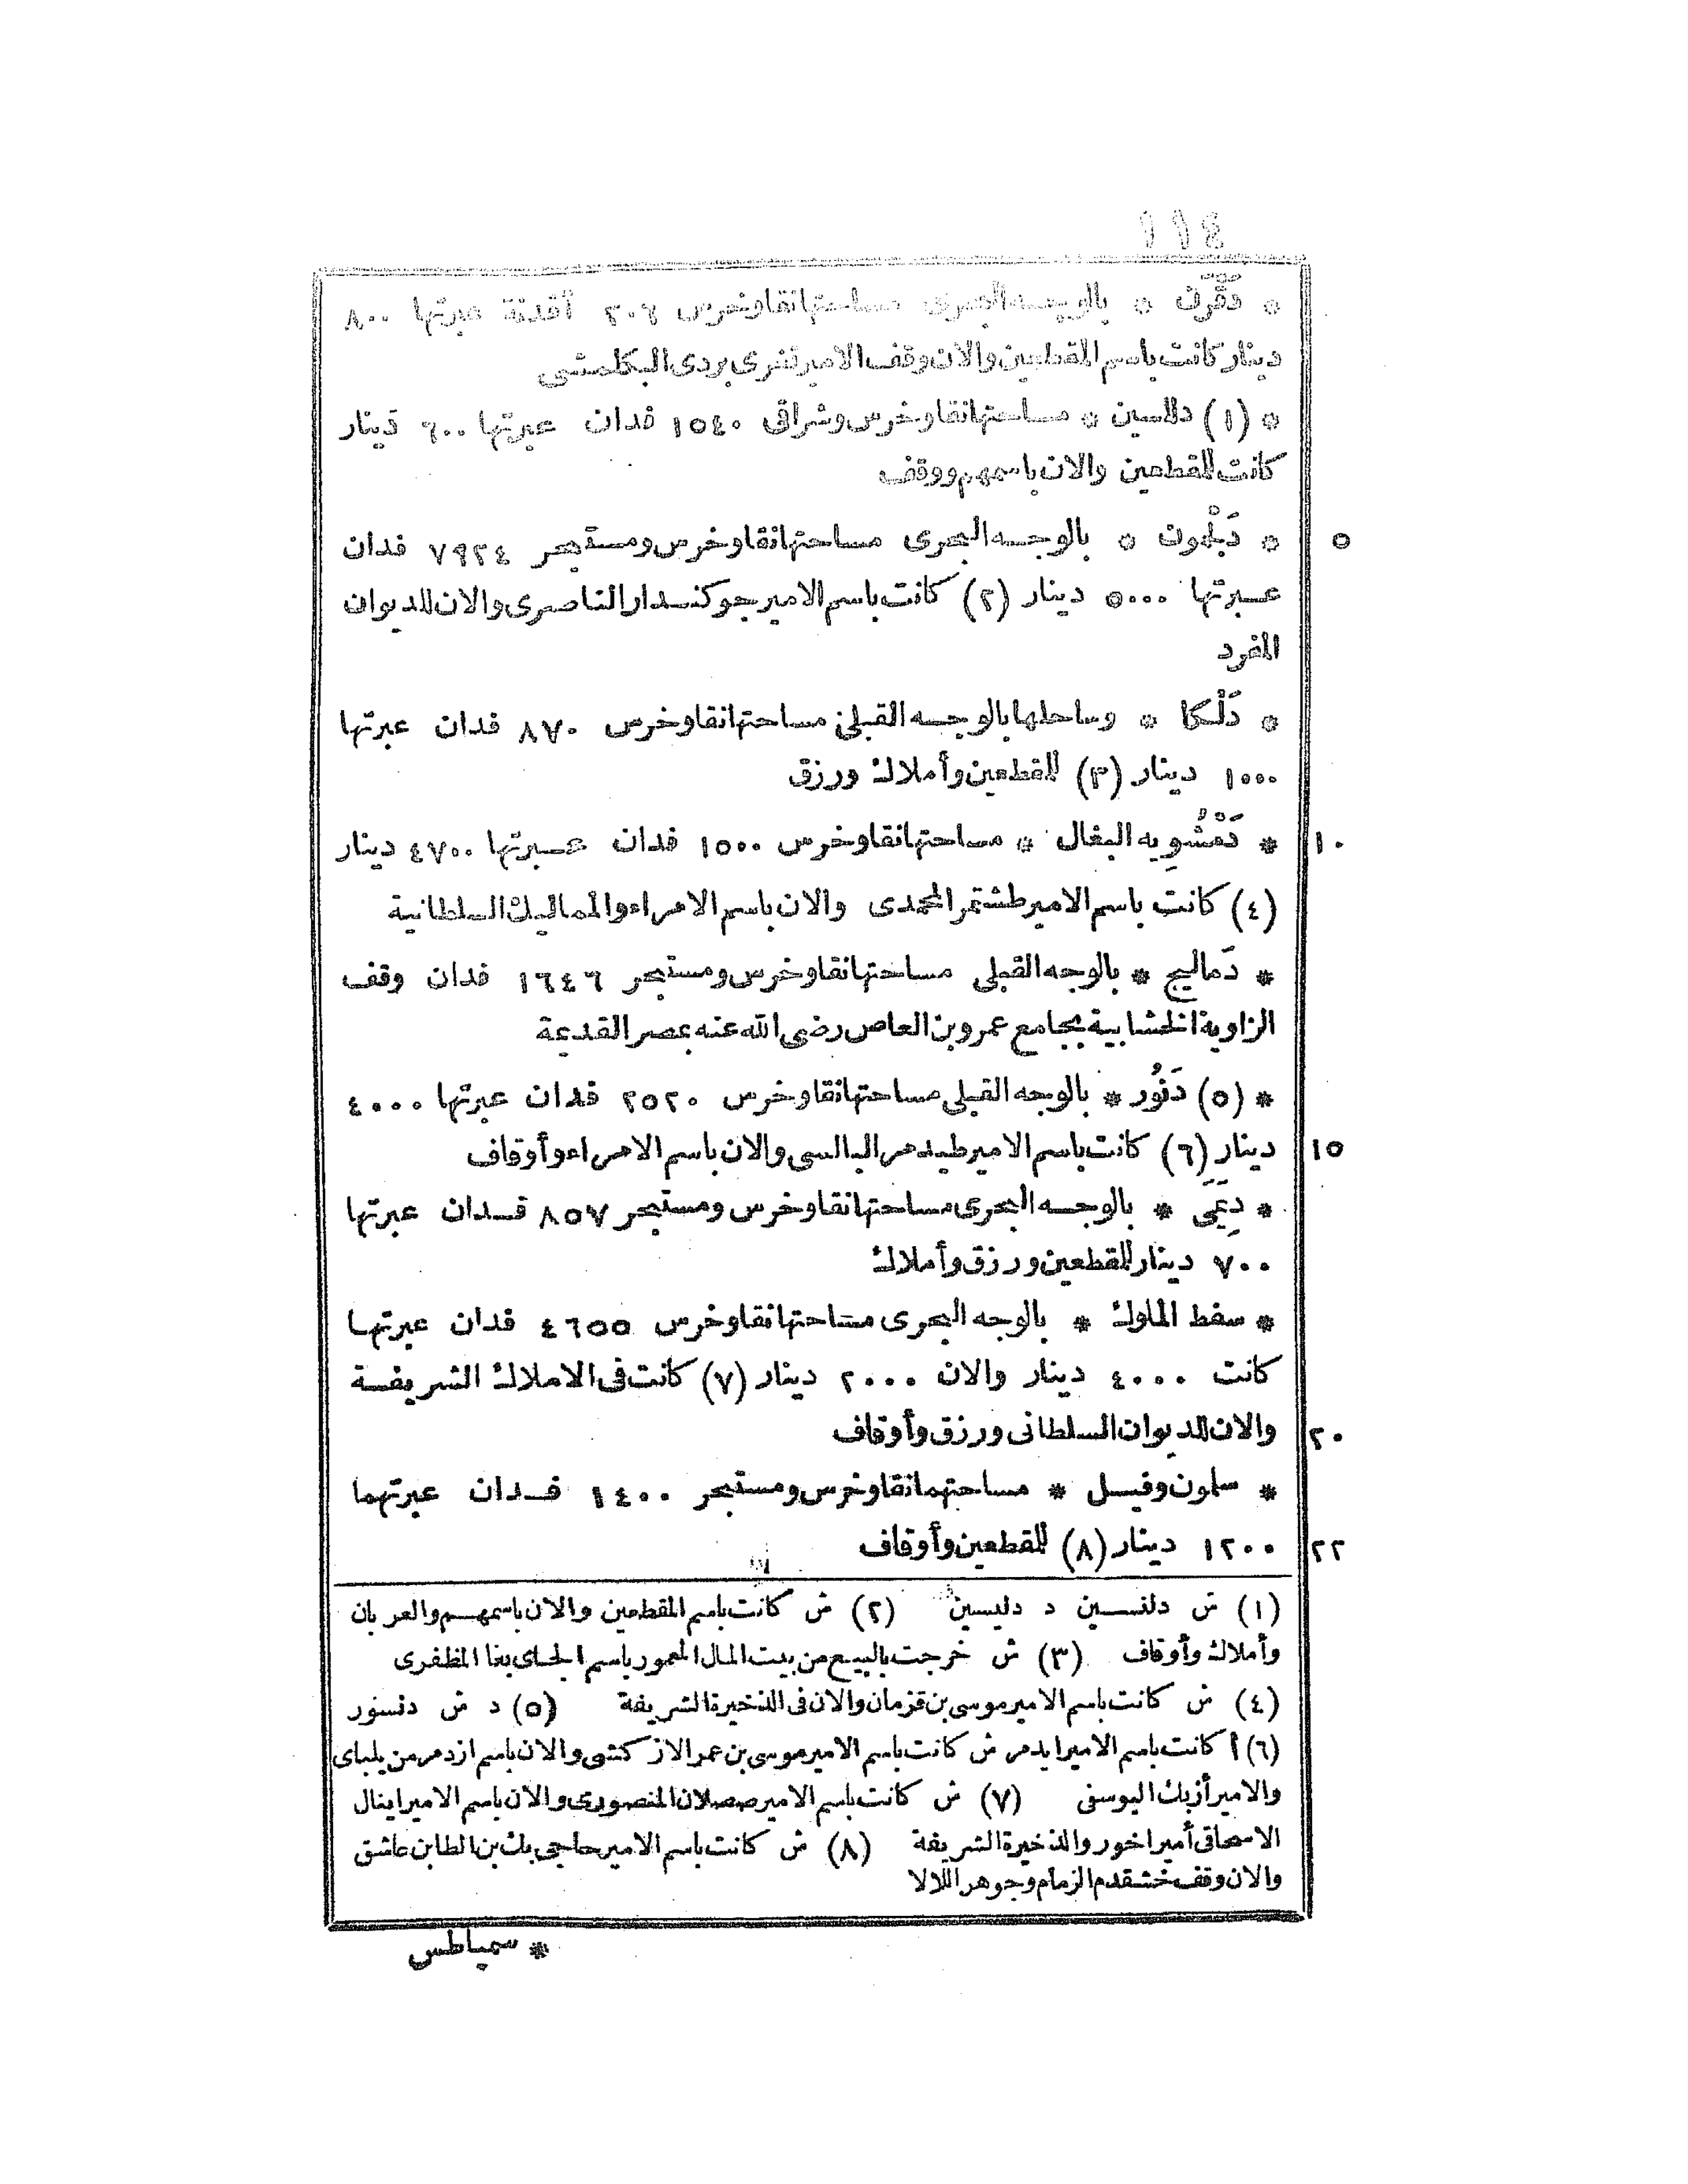 ١١٤
* دَقَرن * بالوجه البحرى مساحتها نقا وخرس ٢٠٦ أفدنة عبرتها ٨٠٠
دينار كانت باسم المقطعين والان وقف الامير تغرى بردى البكلمشى
* (١) دلاسين * مساحتها نقا وخرس وشراقى ١٥٤٠ فدان عبرتها ٦٠٠ دينار
كانت للمقطعين والان باسمهم ووقف
* دَبْلمون * بالوجه البحرى مساحتها نقا وخرس ومستبحر ٧٩٢٤ فدان ٥
عبرتها ٥٠٠٠ دينار (٢) كانت باسم الامير جوكندار الناصرى والان للديوان
المفرد
* دَلْكا * وساحلها بالوجه القبلى مساحتها نقا وخرس ٨٧٠ فدان عبرتها
١٠٠٠ دينار (٣) للمقطعين وأملاك ورزق
* دَمْشُويه البغال * مساحتها نقا وخرس ١٥٠٠ فدان عبرتها ٤٧٠٠ دينار ١٠
(٤) كانت باسم الامير طشتمر المحمدى والان باسم الامراء والمماليك السلطانية
* دَماليج * بالوجه القبلى مساحتها نقا وخرس ومستبحر ١٦٤٦ فدان وقف
الزاوية الخشابية بجامع عمرو بن العاص رضى الله عنه بمصر القديمة
* (٥) دَنُور * بالوجه القبلى مساحتها نقا وخرس ٢٥٢٠ فدان عبرتها ٤٠٠٠
دينار (٦) كانت باسم الامير طيدمر البالسى والان باسم الامراء وأوقاف ١٥
* دِيَمَى * بالوجه البحرى مساحتها نقا وخرس ومستبحر ٨٥٧ فدان عبرتها
٧٠٠ دينار للمقطعين ورزق وأملاك
* سفط الملوك * بالوجه البحرى مساحتها نقا وخرس ٤٦٥٥ فدان عبرتها
كانت ٤٠٠٠ دينار والان ٢٠٠٠ دينار (٧) كانت فى الاملاك الشريفة
والان للديوان السلطانى ورزق وأوقاف ٢٠
* سلمون وفيسل * مساحتهما نقا وخرس ومستبحر ١٤٠٠ فدان عبرتهما
١٢٠٠ دينار (٨) للمقطعين وأوقاف ٢٢
(١) ش دلنسين د دليسين (٢) ش كانت باسم المقطعين والان باسمهم والعربان
وأملاك وأوقاف (٣) ش خرجت بالبيع من بيت المال المعمور باسم الجاى بغا المظفرى
(٤) ش كانت باسم الامير موسى بن قزمان والان فى الذخيرة الشريفة (٥) د ش دنسور
(٦) أ كانت باسم الامير ايدمر ش كانت باسم الامير موسى بن عمر الازكشى والان باسم ازدمر من يلباى
والامير أزبك اليوسفى (٧) ش كانت باسم الامير صصلان المنصورى والان باسم الامير اينال
الاسحاقى أمير اخور والذخيرة الشريفة (٨) ش كانت باسم الامير حاجى بك بن الطابن عاشق
والان وقف خشقدم الزمام وجوهر اللالا
* سمياطس